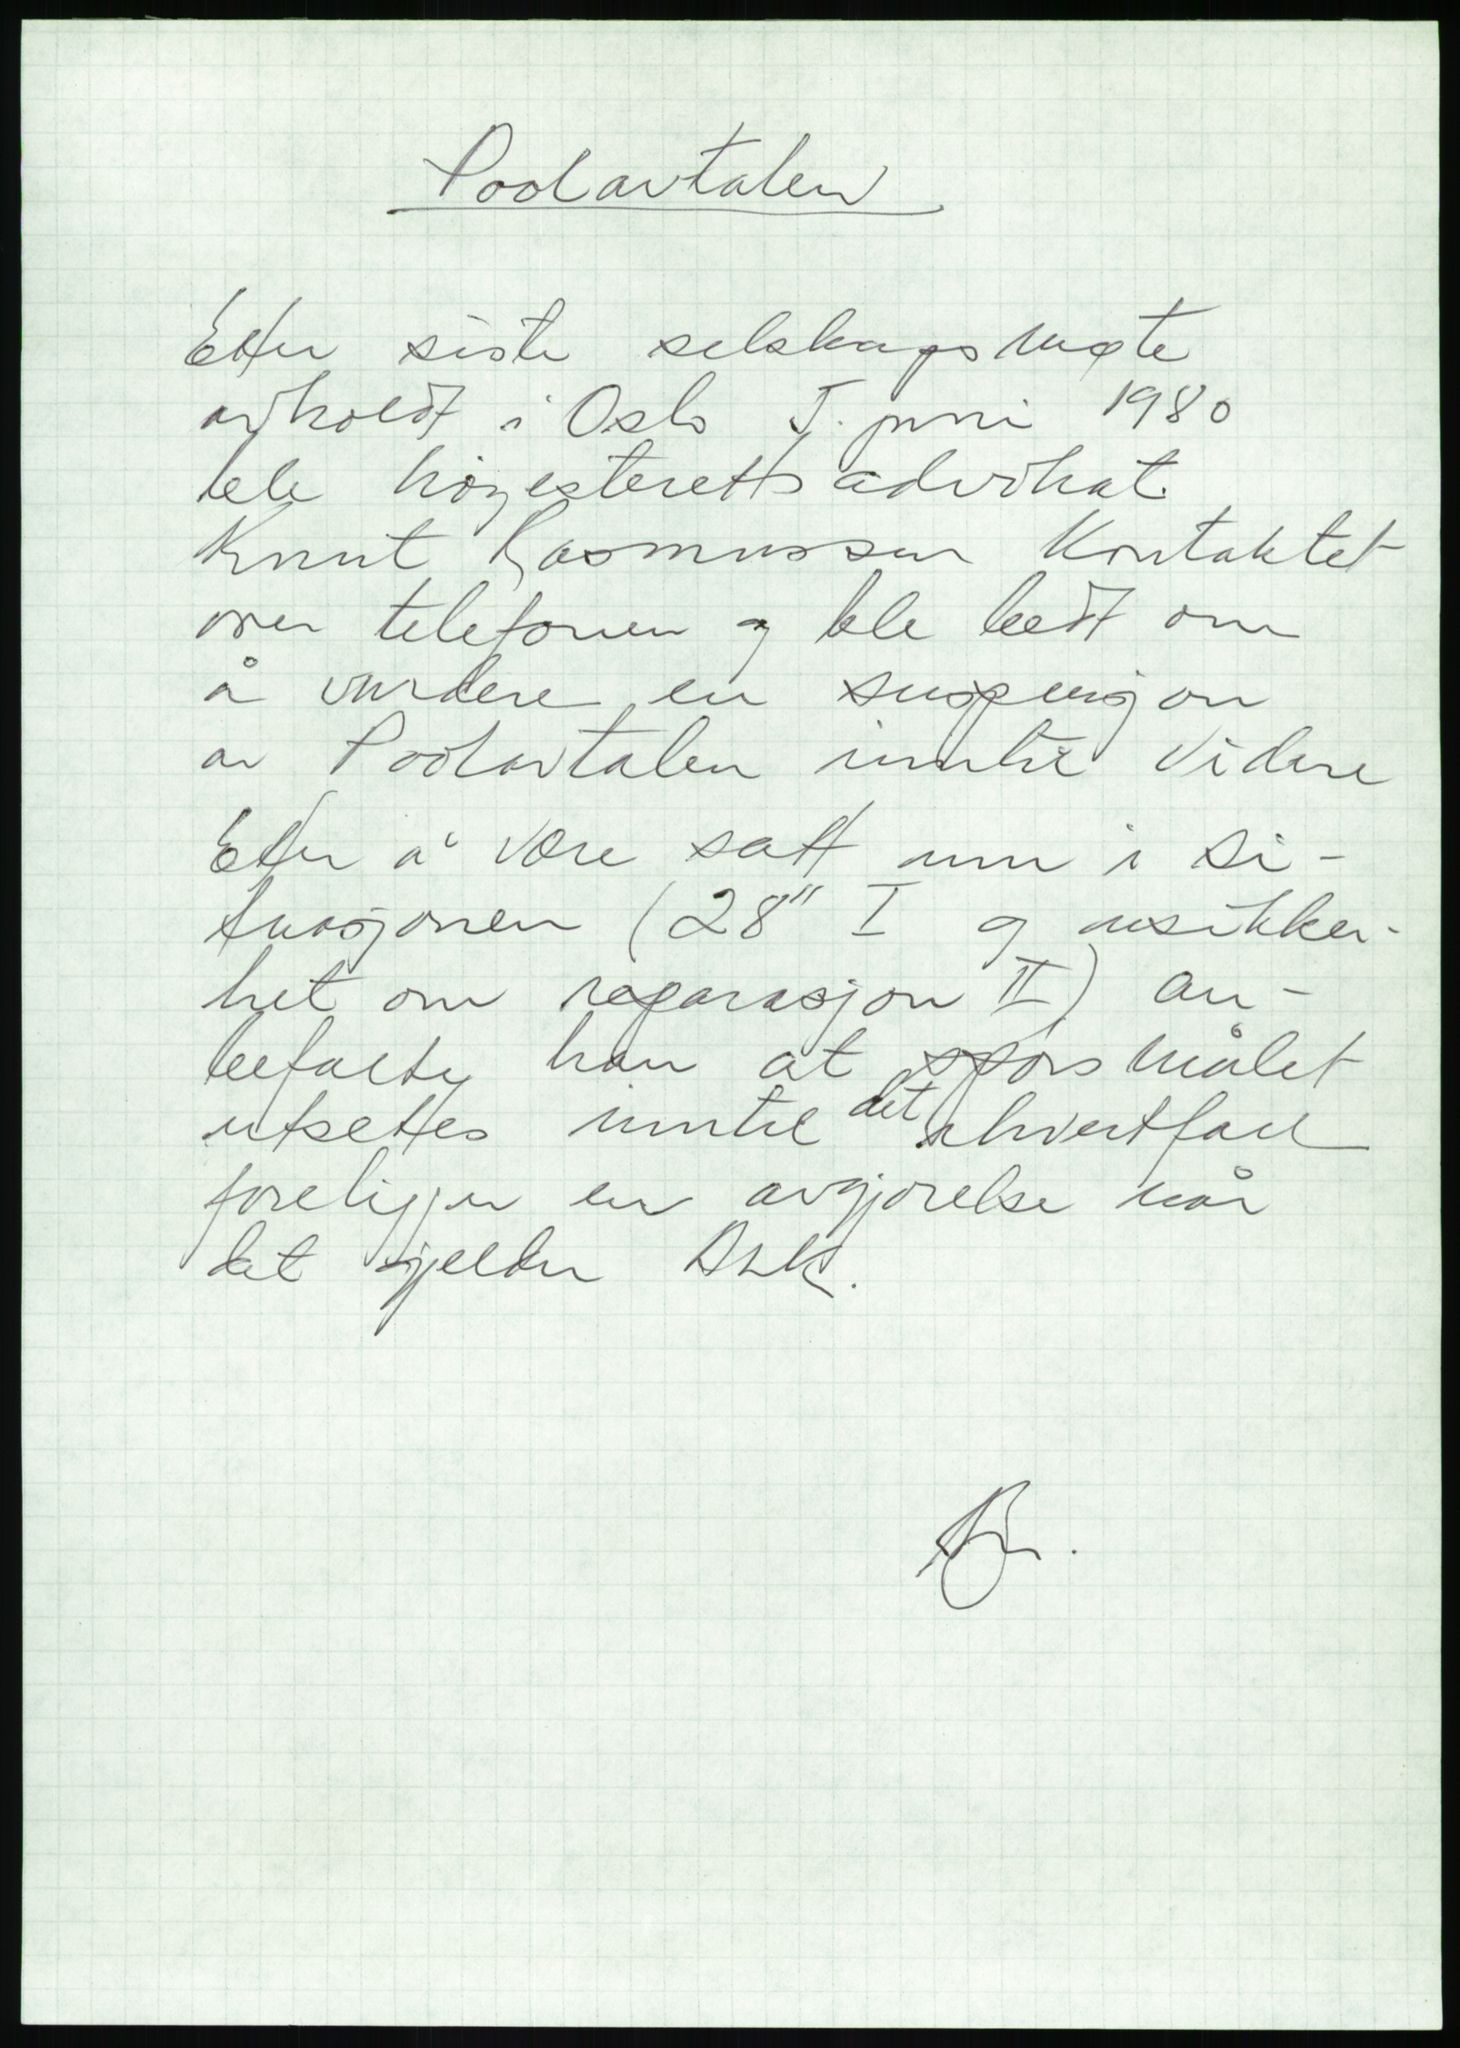 Poolavtalen
Etter siste selskapsmøte
avholdt i Oslo 5. juni 1980
ble høyesterettsadvokat
Knut Rasmussen kontaktet
over telefonen og ble bedt om
å vurdere en suspensjon
av Poolavtalen inntil videre
Etter å være satt inn i si-
tuasjonen (28" I og usikker-
het om reparasjon II) an-
befalte han at spørsmålet
utsettes inntil det ihvertfall
foreligger en avgjørelse når
det gjelder